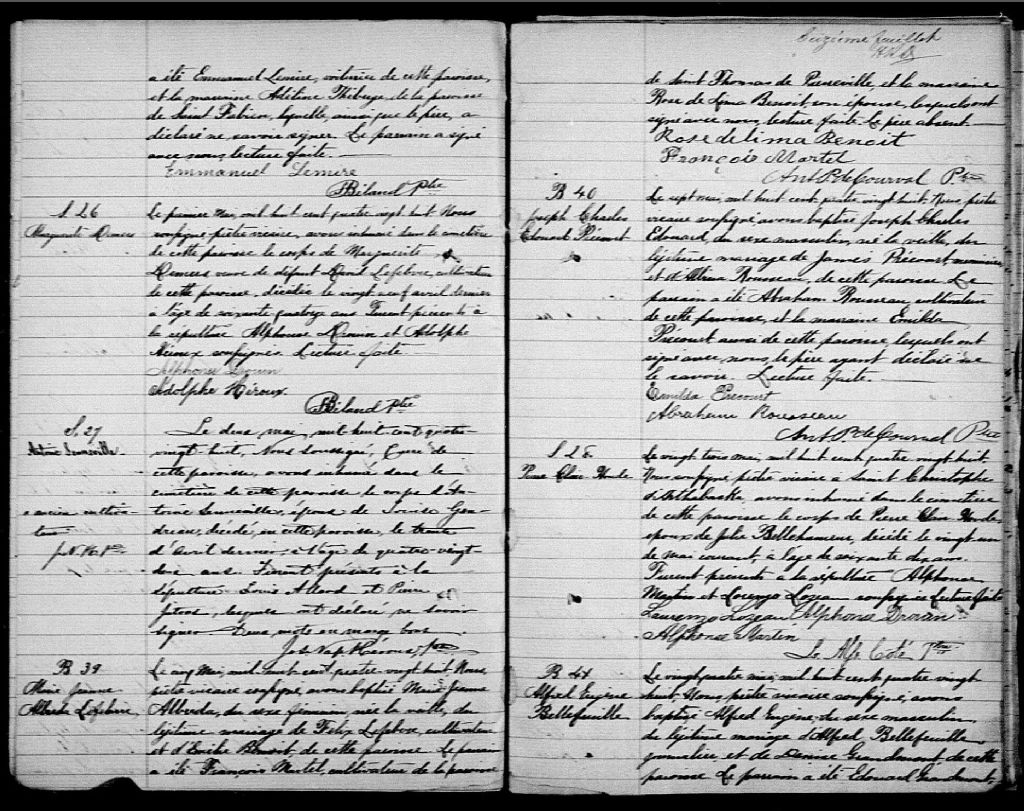 a été Emmanuel Lemire, voiturier de cette paroisse,
et la marraine Adeline Thiberge, de la paroisse
de Saint Fabien, laquelle, ainsi que le père, a
déclaré ne savoir signer. Le parrain a signé
avec nous, lecture faite.
Emmanuel Lemire
Béland Ptre
S. 26
Marguerite Demers
Le premier Mai, mil huit cent quatre vingt huit Nous
soussigné, prêtre vicaire, avons inhumé dans le cimetière
de cette paroisse le corps de Marguerite
Demers veuve de défunt Lefebvre, cultivateur
de cette paroisse, décédée le vingt neuf avril dernier
à l'âge de soixante quatorze ans Furent présents à
la sépulture Alphonse Drouin et Adolphe
Héroux soussignés. Lecture faite
Alphonse Drouin
Adolphe Héroux.
Béland Ptre
S. 27
Antoine
Le deux mai, mil-huit-cent-quatre-
vingt-huit, Nous soussigné, Curé de
cette paroisse, avons inhumé dans le
cimetière de cette paroisse le corps d'An-
toine époux de Louise Gen-
dreau, décédé, en cette paroisse, le trente
d'Avril dernier, à l'âge de quatre-vingt-
ans. Furent présents à la
sépulture Louis Allard et Pierre
lesquels ont déclaré ne savoir
signer Deux mots en marge bons
ancien cultiva-
teur
Jos. Nap. Héroux, ptre
B 39
Marie Jeanne
Albertha Lefebvre
Le cinq Mai, mil huit cent quatre vingt huit Nous
prêtre vicaire soussigné, avons baptisé Marie Jeanne
du sexe féminin, née la veille, du
légitime mariage de Félix Lefebvre, cultivateur
et d'Emilie Benoit de cette paroisse Le parrain
a été François Martel, cultivateur de la paroisse
Onzième feuillet
de Saint Thomas de Pierreville, et la marraine
Rose de Lima Benoit, son épouse, lesquels ont
signé avec nous, lecture faite. Le père absent.
Rose de lima Benoit
François Martel
Ant. P. de Courval Ptre
B 40
Joseph Charles
Edouard Précourt
Le sept mai, mil huit cent quatre vingt huit, Nous, prêtre
vicaire soussigné, avons baptisé Joseph Charles
Edouard, du sexe masculin, né la veille, du
légitime mariage de James Précourt menuisier
et d'Albina Rousseau, de cette paroisse Le
parrain a été Abraham Rousseau, cultivateur
de cette paroisse, et la marraine Emilda
Précourt aussi de cette paroisse, lesquels ont
signé avec nous, le père ayant déclaré ne
le savoir. Lecture faite.
Emilda Precourt
Abraham Rousseau
Ant P. de Courval Ptre
S 28
Pierre Houde
Le vingt trois mai, mil huit cent quatre vingt huit
Nous soussigné, prêtre vicaire à Saint Christophe
d'Arthabaska, avons inhumé dans le cimetière
de cette paroisse le corps de Pierre Houde
époux de Julie Bellehumeur, décédé le vingt un
de mai courant, à l'âge de soixante dix ans.
Furent présents à la sépulture Alphonse
Martin et Lorenzo Lozeau soussignés Lecture faite
Laurenzo Lozeau Alphonse Drouin
Alphonse Martin
Alf. Coté Ptre
B 41
Alfred Eugène
Bellefeuille
Le vingt quatre mai, mil huit cent quatre vingt
huit Nous prêtre vicaire soussigné, avons
baptisé Alfred Eugène du sexe masculin
du légitime mariage d'Alfred Bellefeuille
journalier et de Denise Grandmont, de cette
paroisse Le parrain a été Edouard Grandmont,